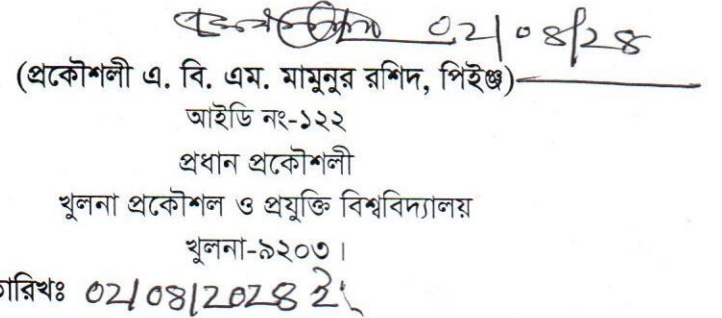 ০২/০৪/২৪
(প্রকৌশলী এ. বি. এম. মামুনুর রশিদ, পিইঞ্জ)
আইডি নং-১২২
প্রধান প্রকৌশলী
খুলনা প্রকৌশল ও প্রযুক্তি বিশ্ববিদ্যালয়
খুলনা-৯২০৩।
তারিখঃ ০২/০৪/২০২৪ ইং